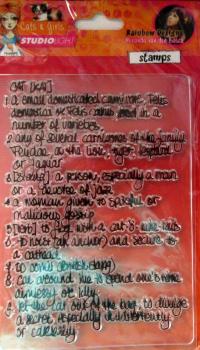 Cats & Girls
STUDIOLIGHT
Rainbow Designs
stamps
CAT [kat]
1. a small domesticated carnivore, Felis
domestica or Felis catus, bred in a
number of varieties
2. any of several carnivores of the family
Felidae, as the lion, tiger, leopard
or jaguar
3. [slang] a person, especially a man
or a devotee of jazz
4. a woman given to spiteful or
malicious gossip
5. [verb] to flog with a cat-o'-nine-tails
6. to hoist (an anchor) and secure to
a cathead
7. to vomit (British slang)
8. cat around live to spend one's time
aimlessly or idly
9. let the cat out of the bag, to divulge
a secret, especially inadvertently
or carelessly